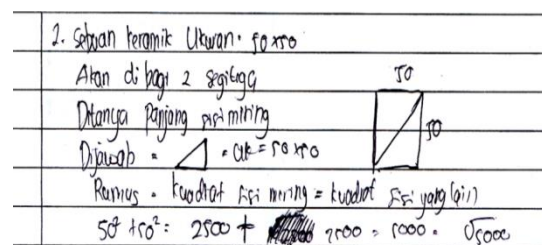 2. Sebuah keramik Ukuran. 50 x 50
Akan di bagi 2 segitiga
50
Ditanya Panjang sisi miring
50
Dijawab = = uk = 50 x 50
Rumus = kuadrat sisi miring = kuadrat sisi yang lain
50² + 50² = 2500 + 2500 = 5000 = √5000